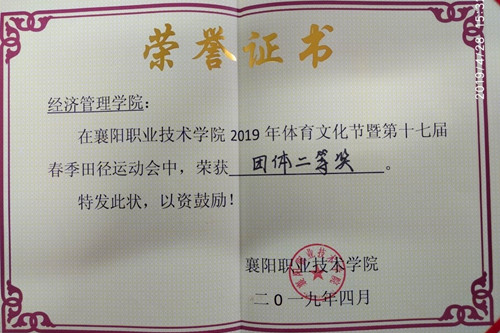 荣誉证书
经济管理学院：
在襄阳职业技术学院 2019 年体育文化节暨第十七届
春季田径运动会中，荣获 团体二等奖 。
特发此状，以资鼓励！
襄阳职业技术学院
二0一九年四月